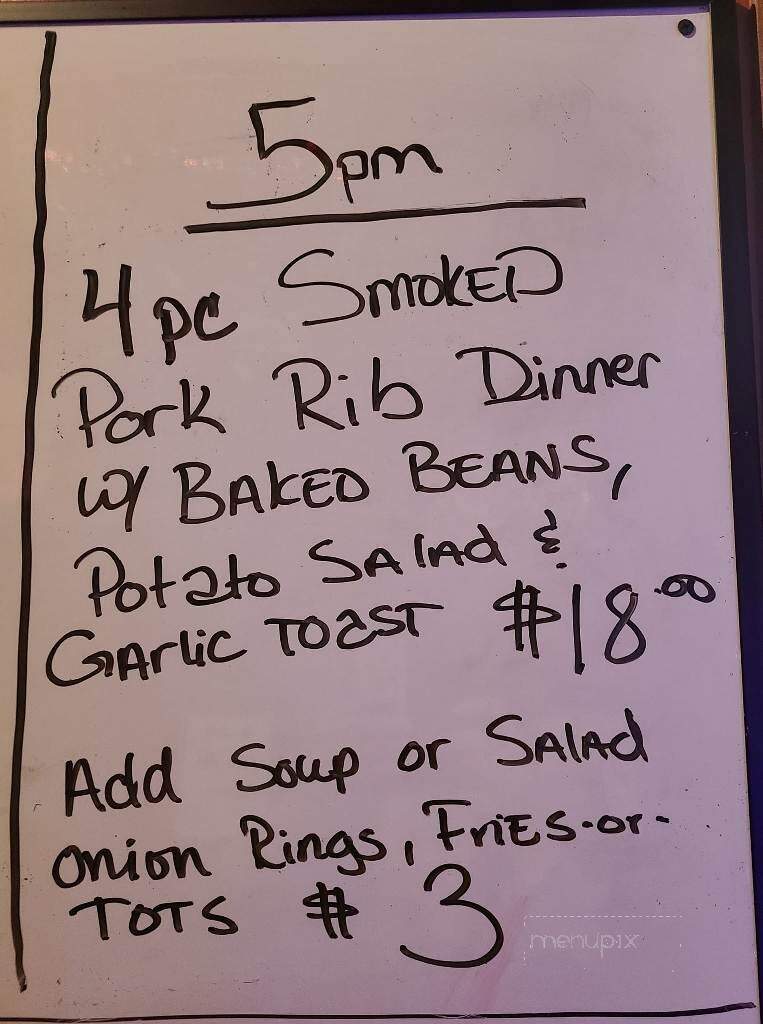 5pm
4pc SMOKED
Pork Rib Dinner
w/ BAKED BEANS,
Potato SALAd &
GARLIC TOAST $18.00
Add Soup or SALAd
onion Rings, FriES-or-
TOTS $3
menupix